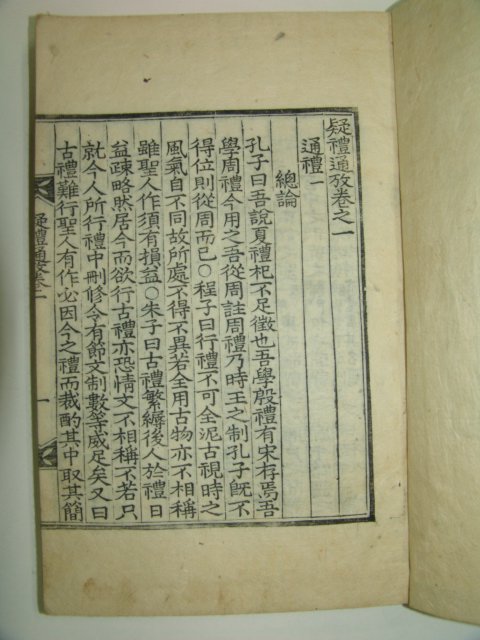 疑禮通攷卷之一
通禮一
總論
孔子曰吾說夏禮杞不足徵也吾學殷禮有宋存焉吾
學周禮今用之吾從周註周禮乃時王之制孔子旣不
得位則從周而已○程子曰行禮不可全泥古視時之
風氣自不同故所處不得不異若全用古物亦不相稱
雖聖人作須有損益○朱子曰古禮繁縟後人於禮日
益疎略然居今而欲行古禮亦恐情文不相稱不若只
就今人所行禮中刪修令有節文制數等威足矣又曰
古禮難行聖人有作必因今之禮而裁酌其中取其簡
疑禮通攷卷一
一